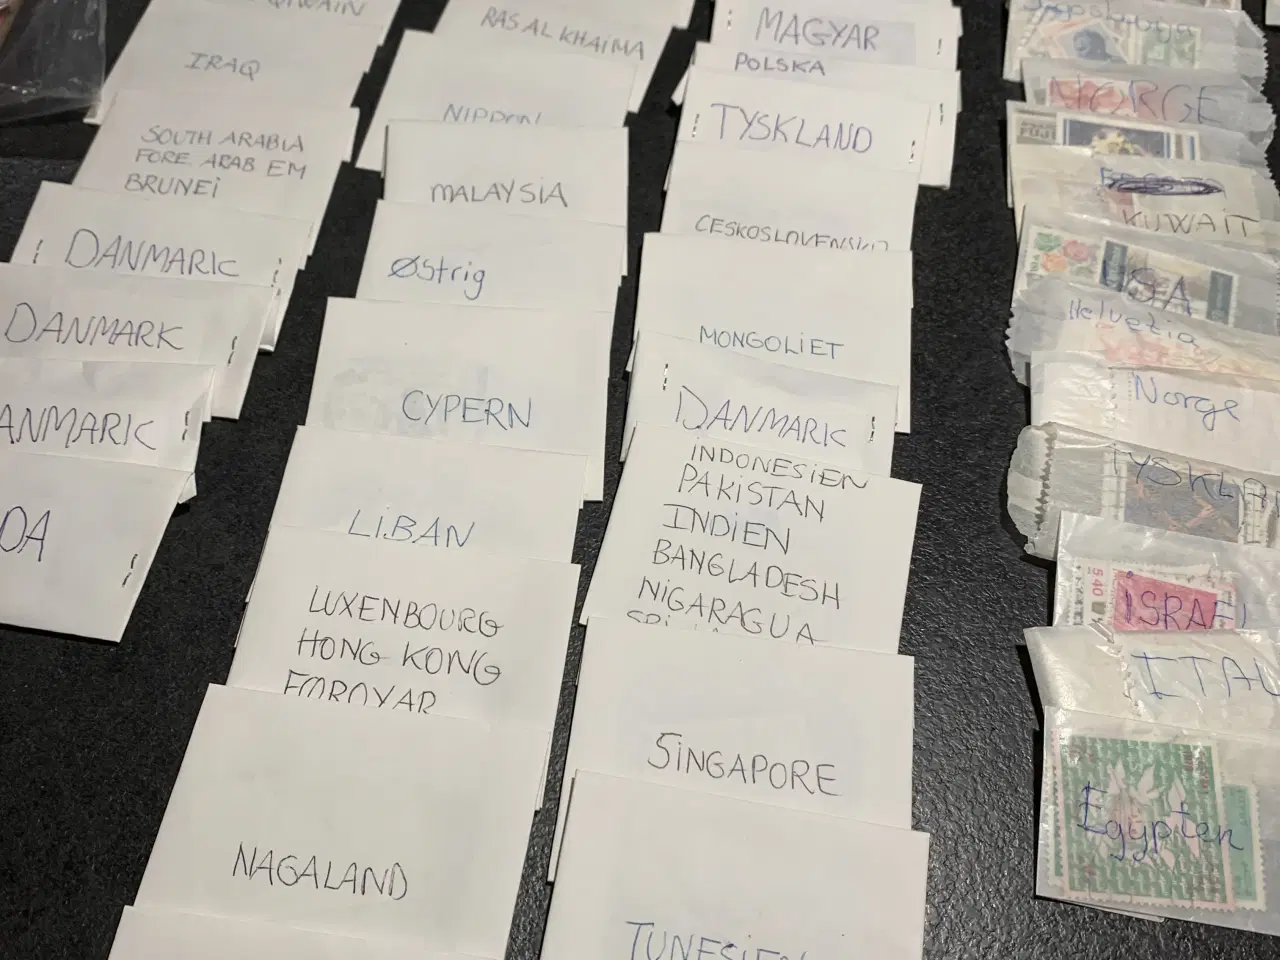 IRAQ
SOUTH ARABIA
FORE. ARAB EM
BRUNEI
DANMARK
DANMARK
ANMARK
DA
RAS AL KHAIMA
NIPPON
MALAYSIA
Østrig
CYPERN
LIBAN
LUXENBOURG
HONG KONG
FÆRØYAR
NAGALAND
MAGYAR
POLSKA
TYSKLAND
CESKOSLOVENSKO
MONGOLIET
DANMARK
INDONESIEN
PAKISTAN
INDIEN
BANGLADESH
NIGARAGUA
SINGAPORE
TUNESIEN
Jugoslavya
NORGE
KUWAIT
USA
Helvetia
Norge
TYSKLA
540
ISRAEL
ITAL
Egypten